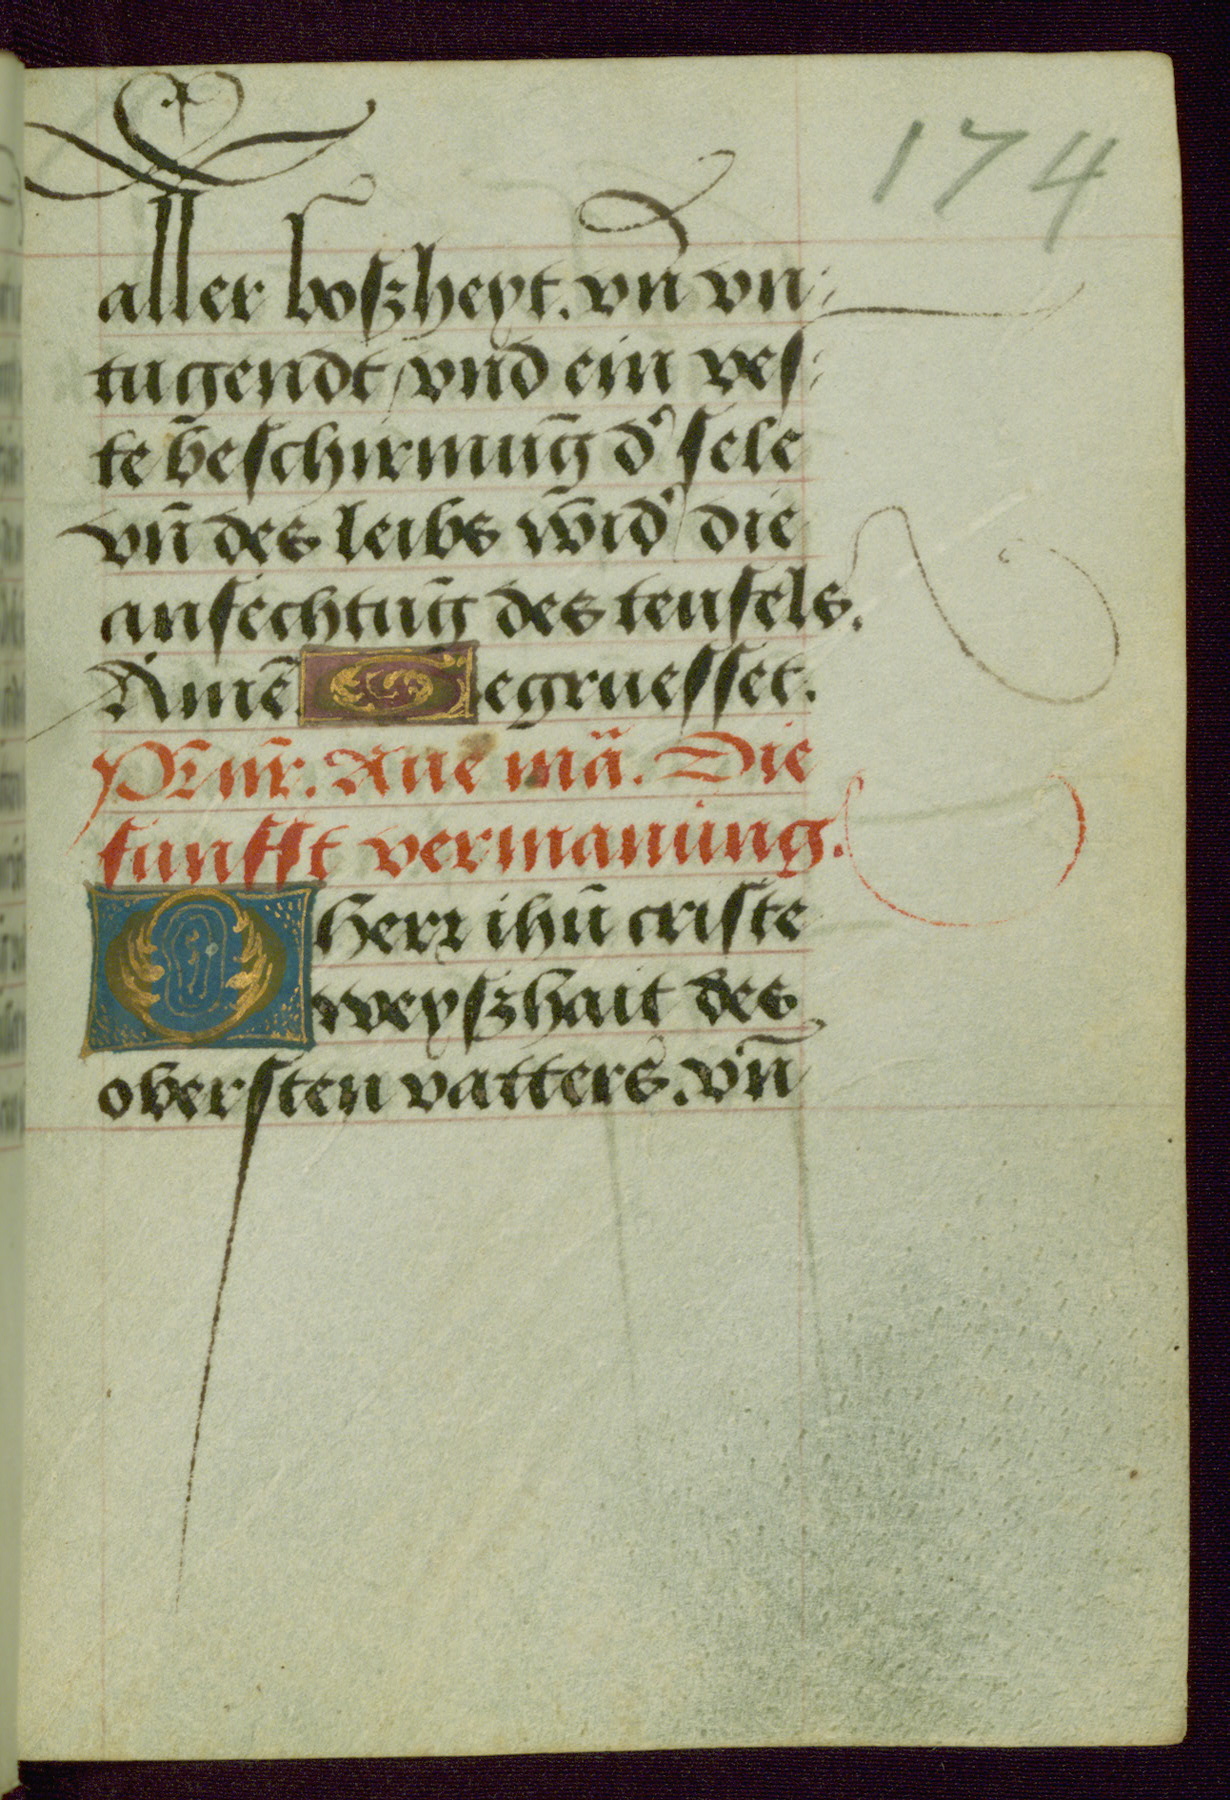 174
aller boszheyt. vn̄ vn-
tugendt / vnd ein ves-
te beschirmūg d' sele
vn̄ des leibs wid' die
anfechtūg des teufels.
Amē. Gegruesset.
Pr̄ nr̄. Aue mā. Die
funfft vermanung.
O Herr ihū criste
weyszhait des
obersten vatters. vn̄